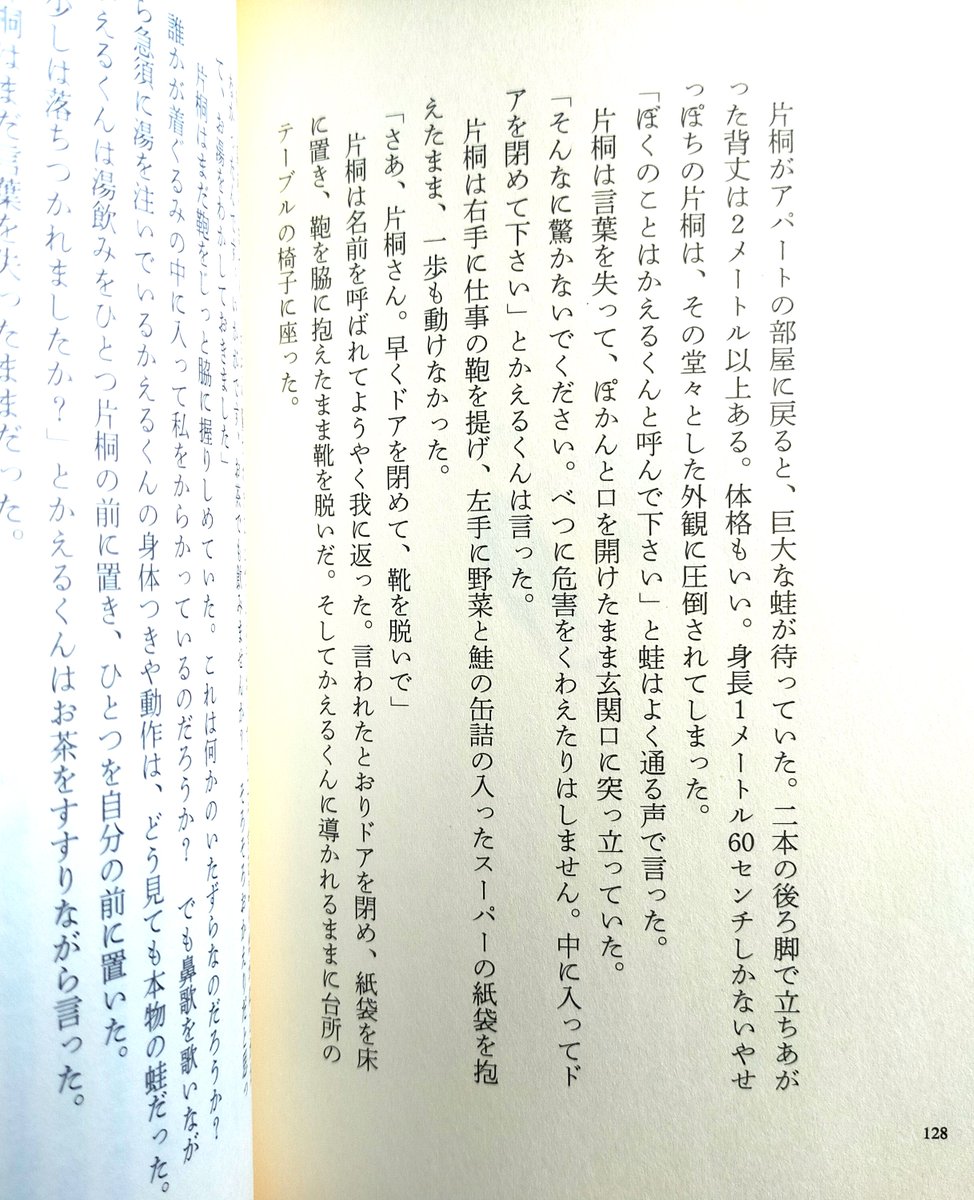 片桐がアパートの部屋に戻ると、巨大な蛙が待っていた。二本の後ろ脚で立ちあが
った背丈は2メートル以上ある。体格もいい。身長1メートル60センチしかないやせ
っぽちの片桐は、その堂々とした外観に圧倒されてしまった。
「ぼくのことはかえるくんと呼んで下さい」と蛙はよく通る声で言った。
片桐は言葉を失って、ぽかんと口を開けたまま玄関口に突っ立っていた。
「そんなに驚かないでください。べつに危害をくわえたりはしません。中に入ってド
アを閉めて下さい」とかえるくんは言った。
片桐は右手に仕事の鞄を提げ、左手に野菜と鮭の缶詰の入ったスーパーの紙袋を抱
えたまま、一歩も動けなかった。
「さあ、片桐さん。早くドアを閉めて、靴を脱いで」
片桐は名前を呼ばれてようやく我に返った。言われたとおりドアを閉め、紙袋を床
に置き、鞄を脇に抱えたまま靴を脱いだ。そしてかえるくんに導かれるままに台所の
テーブルの椅子に座った。
128
お湯をわかしておきました」
片桐はまだ鞄をじっと脇に握りしめていた。これは何かのいたずらなのだろうか?
誰かが着ぐるみの中に入って私をからかっているのだろうか? でも鼻歌を歌いなが
ら急須に湯を注いでいるかえるくんの身体つきや動作は、どう見ても本物の蛙だった。
えるくんは湯飲みをひとつ片桐の前に置き、ひとつを自分の前に置いた。
少しは落ちつかれましたか?」とかえるくんはお茶をすすりながら言った。
桐はまだ言葉を失ったままだった。